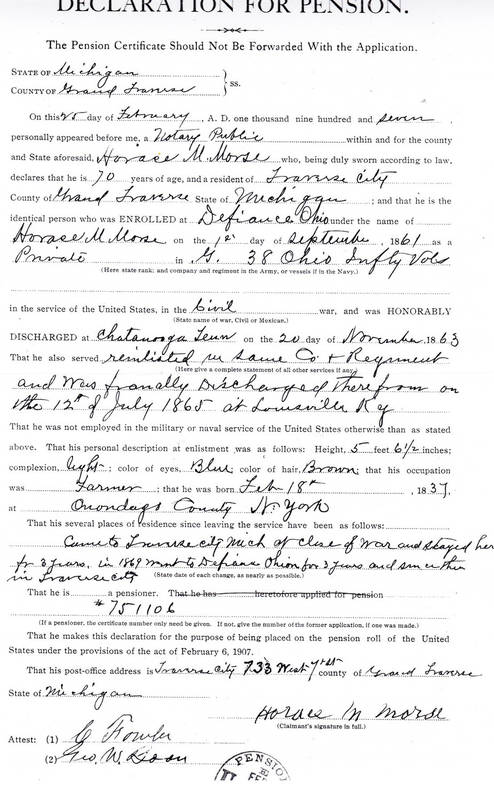 DECLARATION FOR PENSION.
The Pension Certificate Should Not Be Forwarded With the Application.
STATE OF Michigan
COUNTY OF Grand Traverse } ss.
On this 25 day of February, A. D. one thousand nine hundred and seven,
personally appeared before me, a Notary Public within and for the county
and State aforesaid, Horace M. Morse who, being duly sworn according to law,
declares that he is 70 years of age, and a resident of Traverse City
County of Grand Traverse State of Michigan; and that he is the
identical person who was ENROLLED at Defiance Ohio under the name of
Horace M Morse on the 1st day of September, 1861 as a
Private in G. 38 Ohio Infty Vols
(Here state rank; and company and regiment in the Army, or vessels if in the Navy.)
in the service of the United States, in the Civil war, and was HONORABLY
(State name of war, Civil or Mexican.)
DISCHARGED at Chatanooga Tenn on the 20 day of November, 1863
That he also served reinlisted in same Co + Regiment
(Here give a complete statement of all other services if any.)
and was finally Discharged therefrom on
the 12th of July 1865 at Louisville Ky
That he was not employed in the military or naval service of the United States otherwise than as stated
above. That his personal description at enlistment was as follows: Height, 5 feet 6 1/2 inches;
complexion, light; color of eyes, Blue; color of hair, Brown; that his occupation
was Farmer; that he was born Feb 18th, 1837,
at Onondaga County N. York
That his several places of residence since leaving the service have been as follows:
Came to Traverse city Mich at close of war and stayed her
for 3 years, in 1869 went to Defiance Ohio for 3 years and since then
in Traverse City
(State date of each change, as nearly as possible.)
That he is a pensioner. That he has heretofore applied for pension
# 751106
(If a pensioner, the certificate number only need be given. If not, give the number of the former application, if one was made.)
That he makes this declaration for the purpose of being placed on the pension roll of the United
States under the provisions of the act of February 6, 1907.
That his post-office address is Traverse City 733 West 7th st county of Grand Traverse
State of Michigan
Horace M Morse
(Claimant's signature in full.)
Attest: (1) C Fowler
(2) Geo. W.
PENSION
FEB